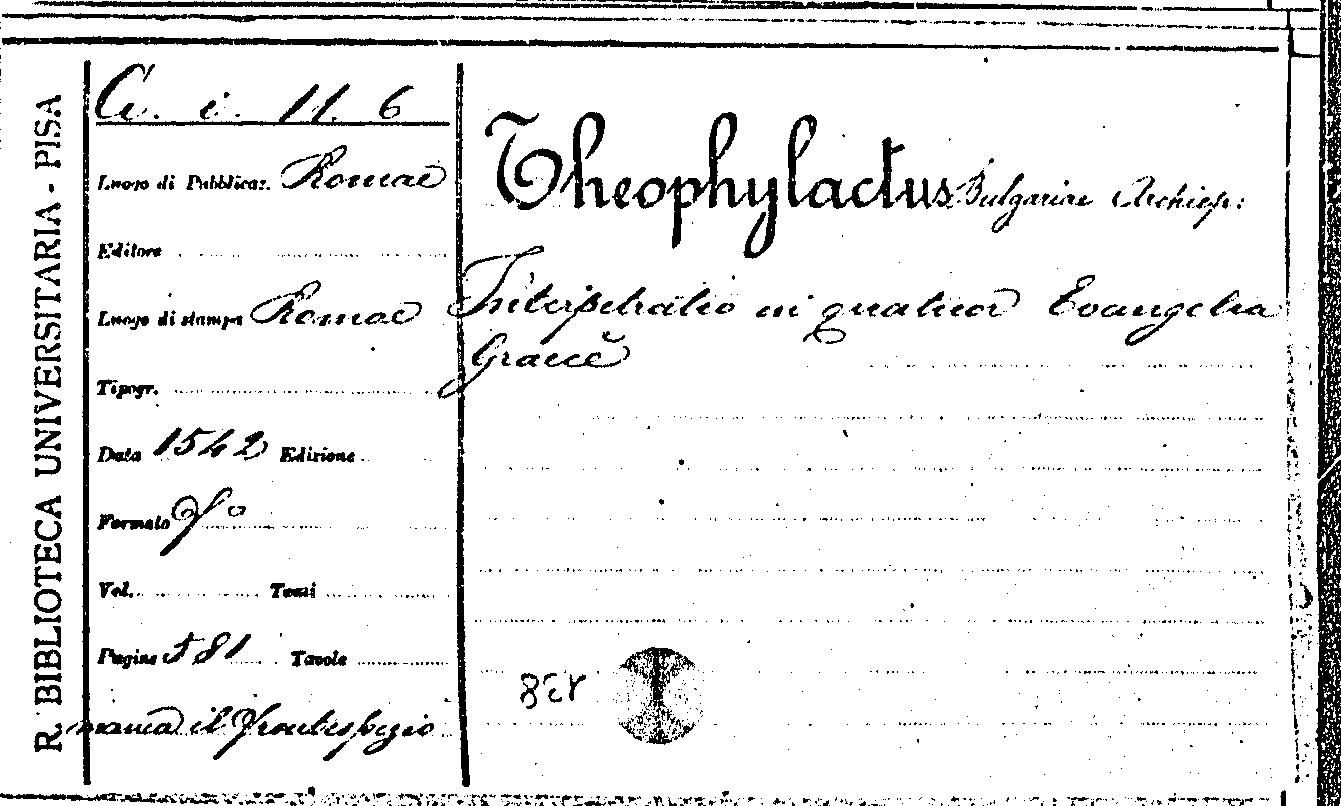 R. BIBLIOTECA UNIVERSITARIA - PISA
A. i. 11. 6
Luogo di Pubblicaz. Romae
Editore
Luogo di stampa Romae
Tipogr.
Data 1542 Edizione
Formato fº
Vol. Tomi
Pagine 581 Tavole
manca il frontespizio
Theophylactus Bulgariae Archiep:
Interpetratio in quatuor Evangelia
Graecè